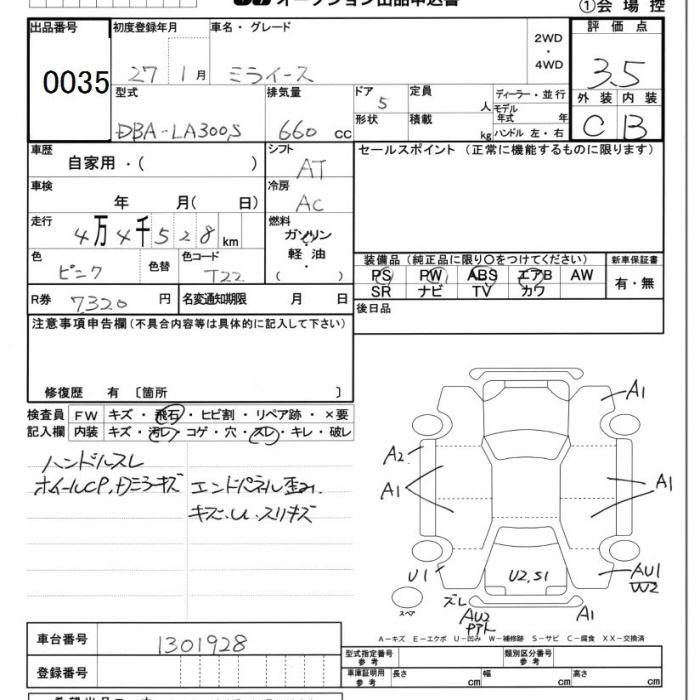 オークション出品申込書
①会場控
出品番号 初度登録年月 車名・グレード 2WD・4WD 評価点
0035 27 1月 ミライース 3.5
型式 排気量 ドア 定員 ディーラー・並行 外装 内装
DBA-LA300S 660cc 5 人 モデル年式 年 C B
形状 積載 kg ハンドル 左・右
車歴 自家用・( ) シフト AT セールスポイント (正常に機能するものに限ります)
車検 年 月( 日) 冷房 AC
走行 4万4千528km 燃料 ガソリン
軽油
・
( )
色 ピンク 色替 色コード T22
装備品 (純正品に限り○をつけてください) 新車保証書
PS PW ABS エアB AW 有・無
SR ナビ TV カワ
R券 7320円 名変通知期限 月 日 後日品
注意事項申告欄 (不具合内容等は具体的に記入して下さい)
修復歴 有 〔箇所 〕
検査員 FW キズ・飛石・ヒビ割・リペア跡・×要
記入欄 内装 キズ・汚レ・コゲ・穴・スレ・キレ・破レ
ハンドルスレ
ホイールCP,カミラーキズ エンドパネル歪み,
キズ・U・スリキズ
A1
A2
A1 A1
U1 U2,S1 AU1
W2
スペア ズレ AU2 A1
Pアト
A-キズ E-エクボ U-凹み W-補修跡 S-サビ C-腐食 XX-交換済
車台番号 1301928
型式指定番号 参考 類別区分番号 参考
登録番号 車庫証明用 参考 長さ cm 幅 cm 高さ cm